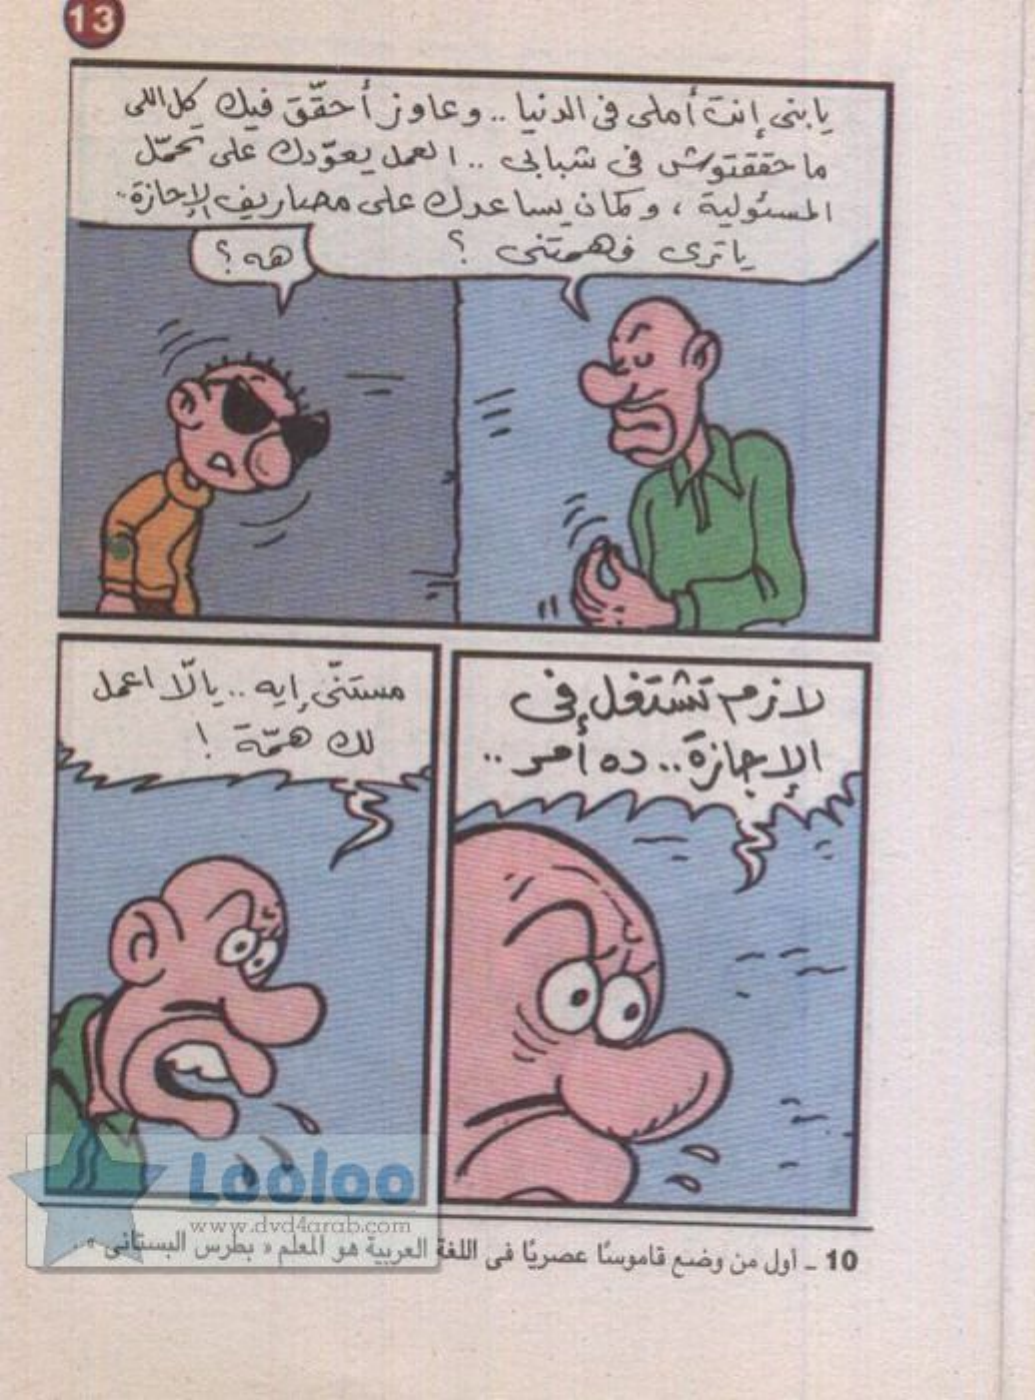 13
يا بنى إنت أملى فى الدنيا .. وعاوز أحقّق فيك كل اللى
ما حققتوش فى شبابى .. العمل يعوّدك على تحمّل
المسئولية ، وكمان يساعدك على مصاريف الإجازة ..
يا ترى فهمتنى ؟
هه ؟
لازم تشتغل فى
الإجازة .. ده أمر ..
مستنّى إيه .. يالّا اعمل
لك همّة !
Looloo
www.dvd4arab.com
10 ـ أول من وضع قاموسًا عصريًا فى اللغة العربية هو المعلم « بطرس البستانى » ..